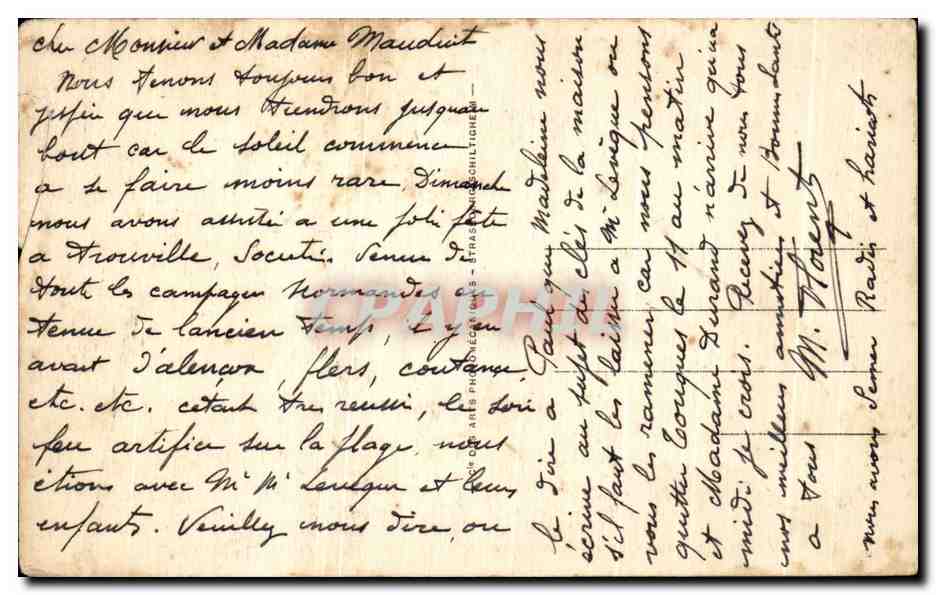 cher Monsieur et Madame Mauduit
nous tenons toujours bon et
jespere que nous tiendrons jusquau
bout car le soleil commence
a se faire moins rare, Dimanche
nous avons assisté a une joli fête
a Trouville, Societies Venue de
toute les campagnes Normandes en
tenue de lancien temps, il y en
avait D'alençon, flers, coutance,
etc. etc. cetait tres reussi, le soir
feu artifice sur la plage, nous
étions avec Mr Me Leveque et leurs
enfants. Veuillez nous dire, ou
le dire a Madeleine nous
écrire au sujet des clés de la maison
s'il faut les laisser a Mr Levêque ou
vous les ramener car nous pensons
quitter Touques le 11 au matin
et Madame Durand n'arrive qu'a
midi je crois. Recevez de nous tous
nos meilleurs amitiés et Bonne Santé
a tous M. Florent
nous avons Semer Radis et haricots
Cie DES ARTS PHOTOMÉCANIQUES - STRASBOURG-SCHILTIGHEIM
CPAPHIL